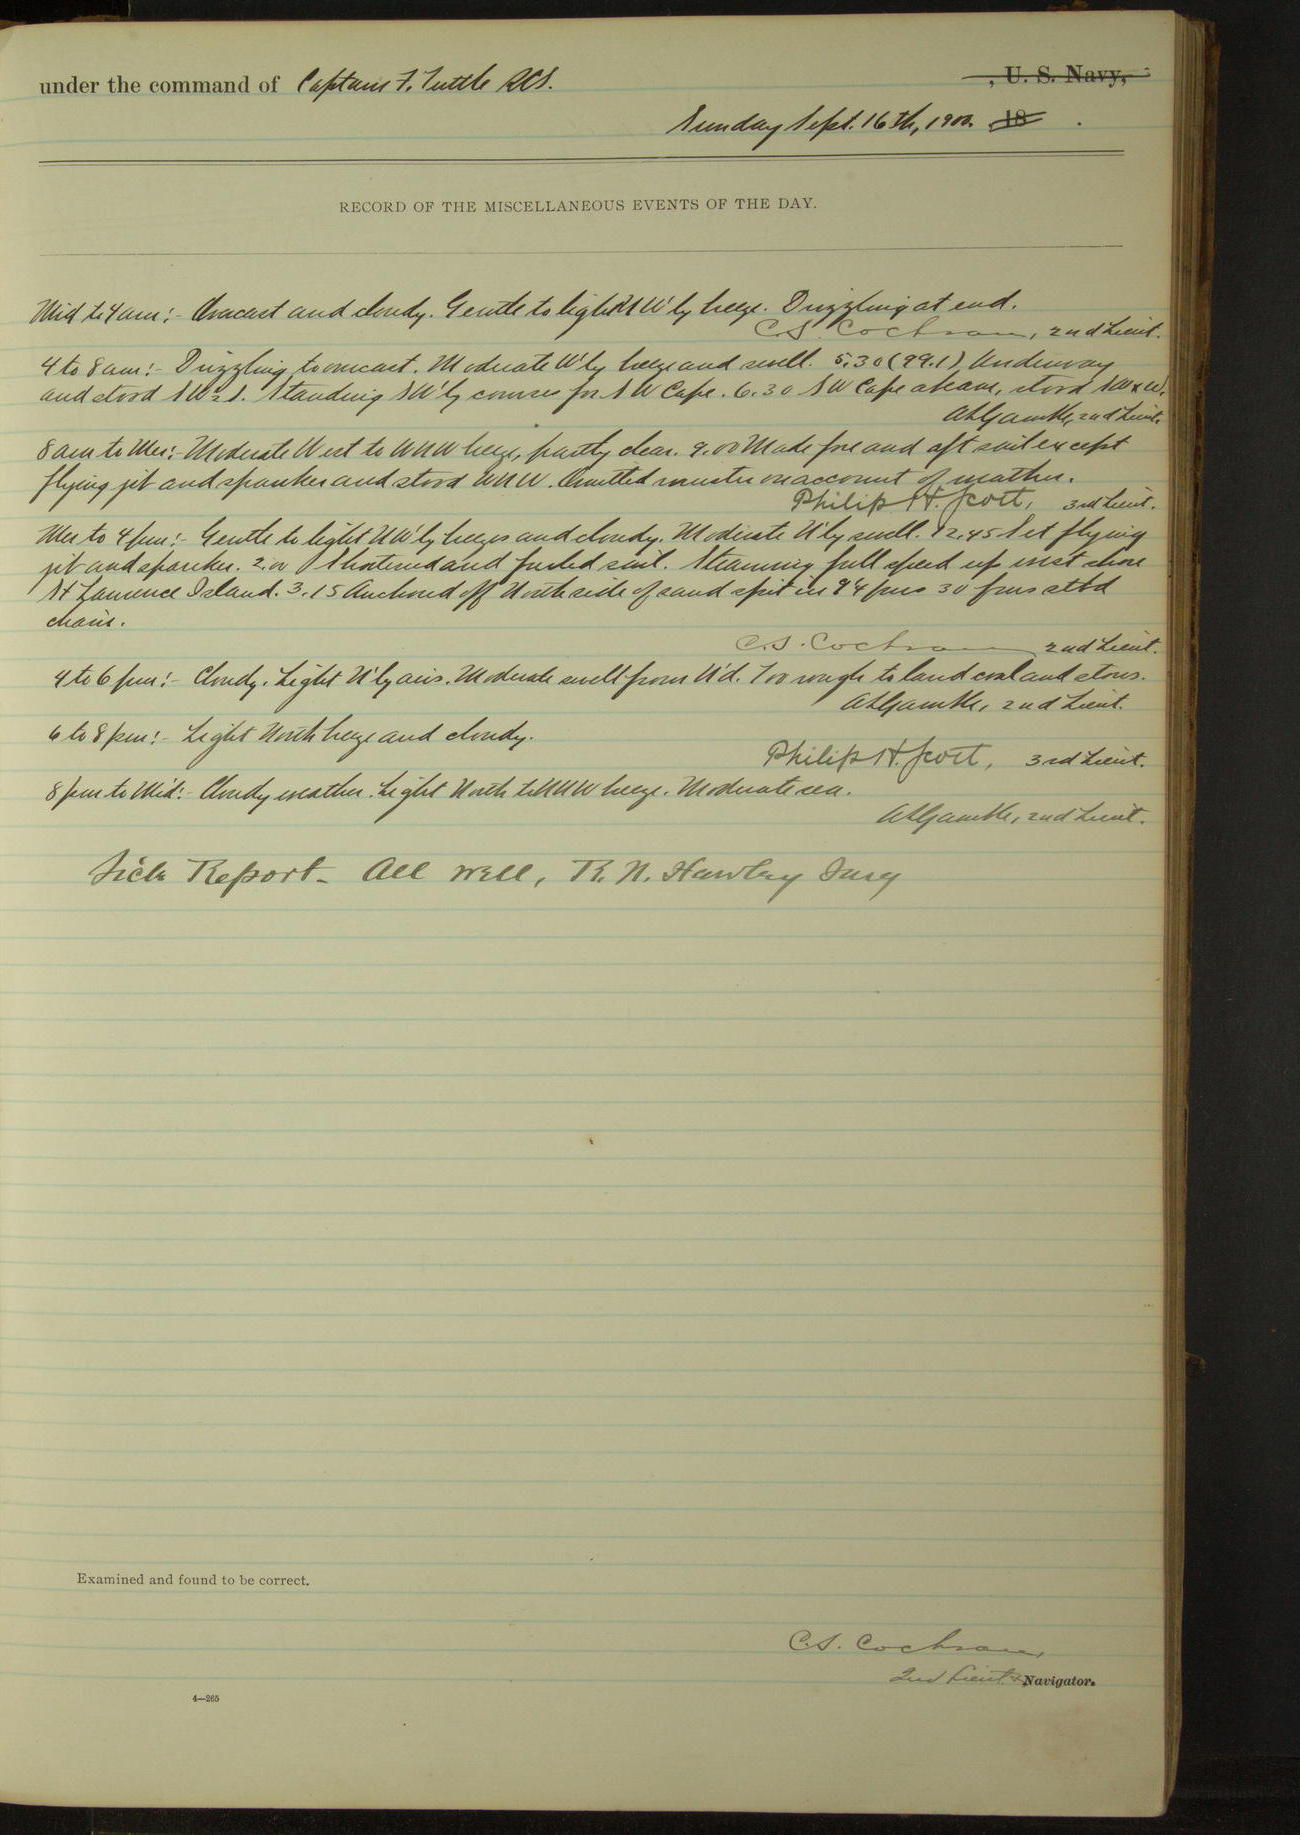 under the command of Captain F. Tuttle RCS. , U. S. Navy,
Sunday Sept. 16th, 1900. 18 .
RECORD OF THE MISCELLANEOUS EVENTS OF THE DAY.
Mid to 4 am:- Overcast and cloudy. Gentle to light NW'ly breeze. Drizzling at end.
C.S. Cochran, 2nd Lieut.
4 to 8 am:- Drizzling to overcast. Moderate W'ly breeze and swell. 5.30 (99.1) Underway
and stood SW½S. Standing SW'ly courses for SW Cape. 6.30 SW Cape abeam, stood NWxW.
A L Gamble, 2nd Lieut.
8 am to Mer:- Moderate West to WNW breeze, partly clear. 9.00 Made fore and aft sail except
flying jib and spanker and stood WNW. Omitted muster on account of weather.
Philip H. Scott, 3rd Lieut.
Mer to 4 pm:- Gentle to light NW'ly breezes and cloudy. Moderate N'ly swell. 12.45 Set flying
jib and spanker. 2.00 Shortened and furled sail. Steaming full speed up west shore
St Lawrence Island. 3.15 Anchored off North side of sand spit in 9¼ fms 30 fms stbd
chain.
C.S. Cochran 2nd Lieut.
4 to 6 pm:- Cloudy. Light N'ly airs. Moderate swell from N'd. Too rough to land coal and stores.
A L Gamble, 2nd Lieut.
6 to 8 pm:- Light North breeze and cloudy.
Philip H. Scott, 3rd Lieut.
8 pm to Mid:- Cloudy weather. Light North to NNW breeze. Moderate sea.
A L Gamble, 2nd Lieut.
Sick Report- All well, R. N. Hawley Surg
Examined and found to be correct.
C.S. Cochran,
2nd Lieut & Navigator.
4—265